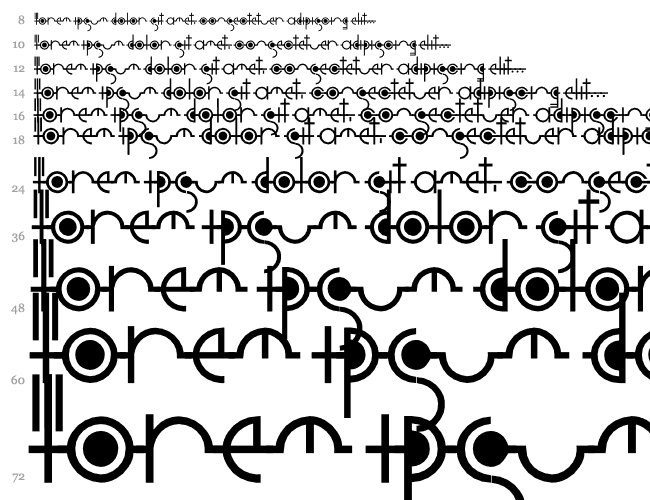 8 Lorem ipsum dolor sit amet, consectetuer adipiscing elit....
10 Lorem ipsum dolor sit amet, consectetuer adipiscing elit....
12 Lorem ipsum dolor sit amet, consectetuer adipiscing elit....
14 Lorem ipsum dolor sit amet, consectetuer adipiscing elit....
16 Lorem ipsum dolor sit amet, consectetuer
18 Lorem ipsum dolor sit amet, consectetuer
24 Lorem ipsum dolor sit amet,
36 Lorem ipsum dolor sit
48 Lorem ipsum
60 Lorem ipsum
72 Lorem ipsum